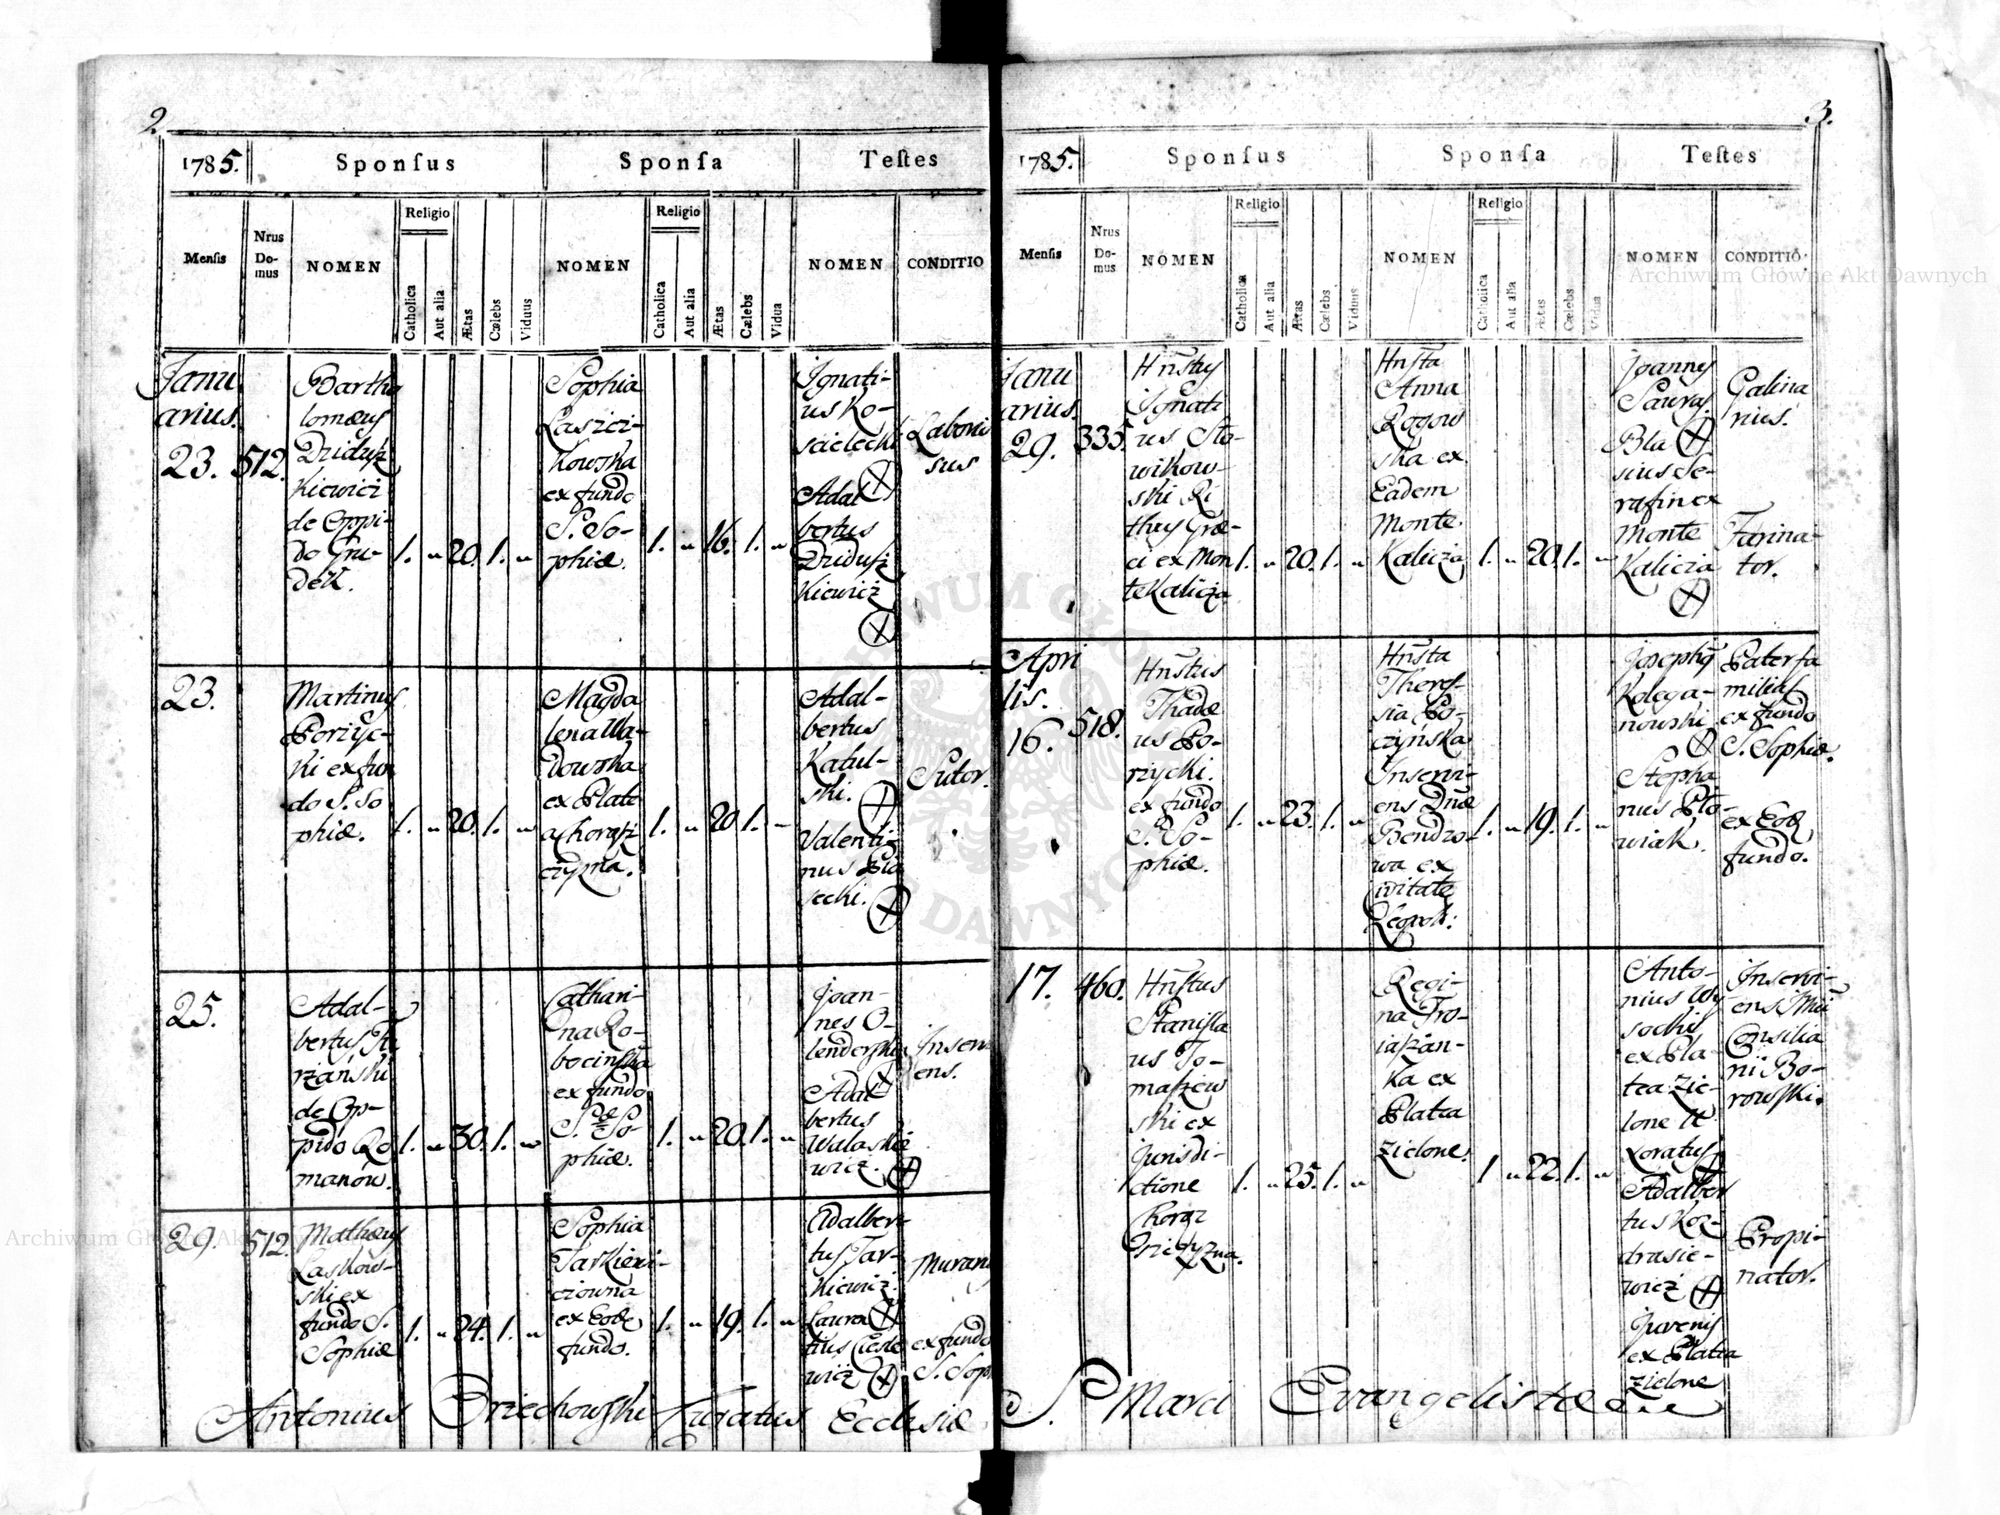 2.
1785.
Sponſus
Sponſa
Teſtes
Menſis
Nrus
Do-
mus
NOMEN
Religio
Catholica
Aut alia
Ætas
Cælebs
Viduus
NOMEN
Religio
Catholica
Aut alia
Ætas
Cælebs
Vidua
NOMEN
CONDITIO
Janu
arius.
23. 512.
Bartho
lomæus
Dzidusz
kiewicz
de Oppi-
do Gru-
dek.
1. „ 20. 1. „
Sophia
Laszcz-
kowska
ex fundo
S. So-
phiæ.
1. „ 16. 1. „
Ignati-
us Ko-
scielecki
Adal
bertus
Dzidusz
kiewicz
Laborio
sus
23.
Martinus
Porzyc-
ki ex fun
do S. So
phiæ.
1. „ 20. 1. „
Magda
lena Wla-
dowska
ex Plate
a Chorąsz
czyzna.
1. „ 20 1. „
Adal-
bertus
Katul-
ski.
Valenti-
nus Pia
secki.
Sutor.
25.
Adal-
bertus
rzanski
de Op-
pido Ro
manow.
1. „ 30. 1. „
Cathari-
na Ro-
bocinska
ex fundo
S. So-
phiæ.
1. „ 20. 1. „
Joan-
nes O-
lenderski
Adal
bertus
Walaskie
wicz.
Inservi
ens.
29. 512.
Mathæus
Laskow-
ski ex
fundo S.
Sophiæ
1. „ 24. 1. „
Sophia
Tarkiewi-
czowna
ex Eode
fundo.
1. „ 19. 1. „
Adalber-
tus Tar-
kiewicz.
Lauren
tius Cieśle
wicz
Murarius
ex fundo
S. Soph
Antonius Brzechowski Curatus Ecclesiæ
3.
1785.
Sponſus
Sponſa
Teſtes
Menſis
Nrus
Do-
mus
NOMEN
Religio
Catholica
Aut alia
Ætas
Cælebs
Viduus
NOMEN
Religio
Catholica
Aut alia
Ætas
Cælebs
Vidua
NOMEN
CONDITIO
Janu
arius.
29. 335.
Hñstus
Ignati
us Sło-
wikow-
ski Ri
thus Græ-
ci ex Mon
te Kalicza
1. „ 20. 1. „
Hñsta
Anna
Rogow
ska ex
Eadem
Monte
Kalicza
1. „ 20. 1. „
Joannes
Sauras
Bla
sius Se-
rafin ex
Monte
Kalicza
Galina
rius.
Farina-
tor.
Apri
lis.
16. 518.
Hñstus
Thadæ
us Po-
rzycki.
ex fundo
S. So-
phiæ.
1. „ 23. 1. „
Hñsta
Theres-
sia Po-
czyńska
Inservi-
ens Dñæ
Bendzo-
wa ex
Civitate
Leopoli.
1. „ 19. 1. „
Josephus
Kolega-
nowski
Stepha
nus Pto
wiak.
Paterfa
milias
ex fundo
S. Sophiæ.
ex Eode
fundo.
17. 460.
Hñstus
Stanisla
us To-
maszew
ski ex
Jurisdi-
ctione
Chorąz
czyzna.
1. „ 25. 1. „
Regi-
na Tro-
jaszan-
ka ex
Platea
Zielone.
1 „ 22. 1. „
Anto-
nius Wy
sockij
ex Pla-
tea Zie-
lone U
xoratus
Adalber
tus Koz-
drasie-
wicz
Juvenis
ex Platea
Zielone
Inservi-
ens Illmi
Consilia
rii Bo-
rowski.
Propi-
nator.
S. Marci Evangelistæ
Archiwum Główne Akt Dawnych
Archiwum Główne Akt Dawnych